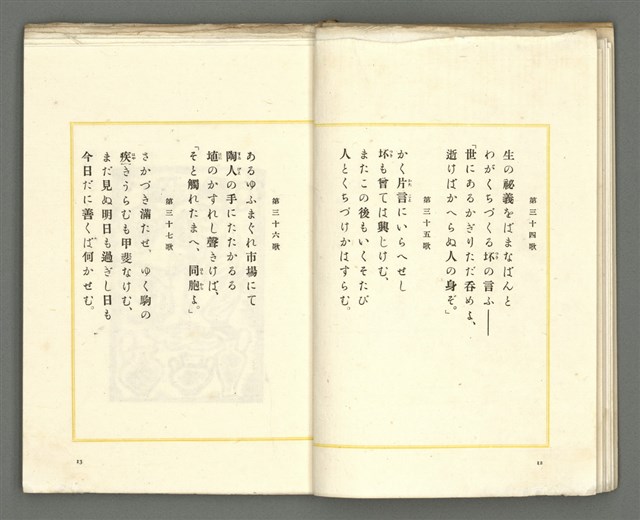 第三十四歌
生の祕義をばまなばんと
わがくちづくる坏の言ふ――
「世にあるかぎりただ呑めよ、
逝けばかへらぬ人の身ぞ。」
第三十五歌
かく片言にいらへせし
坏も曾ては興じけむ、
またこの後もいくそたび
人とくちづけかはすらむ。
12
第三十六歌
あるゆふまぐれ市場にて
陶人の手にたたかるる
埴のかすれし聲きけば、
「そと觸れたまへ、同胞よ。」
第三十七歌
さかづき滿たせ、ゆく駒の
疾きうらむも甲斐なけむ、
まだ見ぬ明日も過ぎし日も
今日だに善くば何かせむ。
13